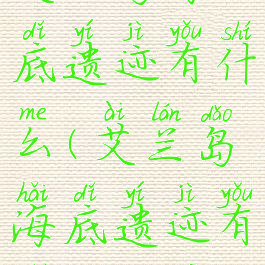 dǐ yí jì yǒu shí
底遗迹有什
me ài lán dǎo
么(艾兰岛
hǎi dǐ yí jì yǒu
海底遗迹有